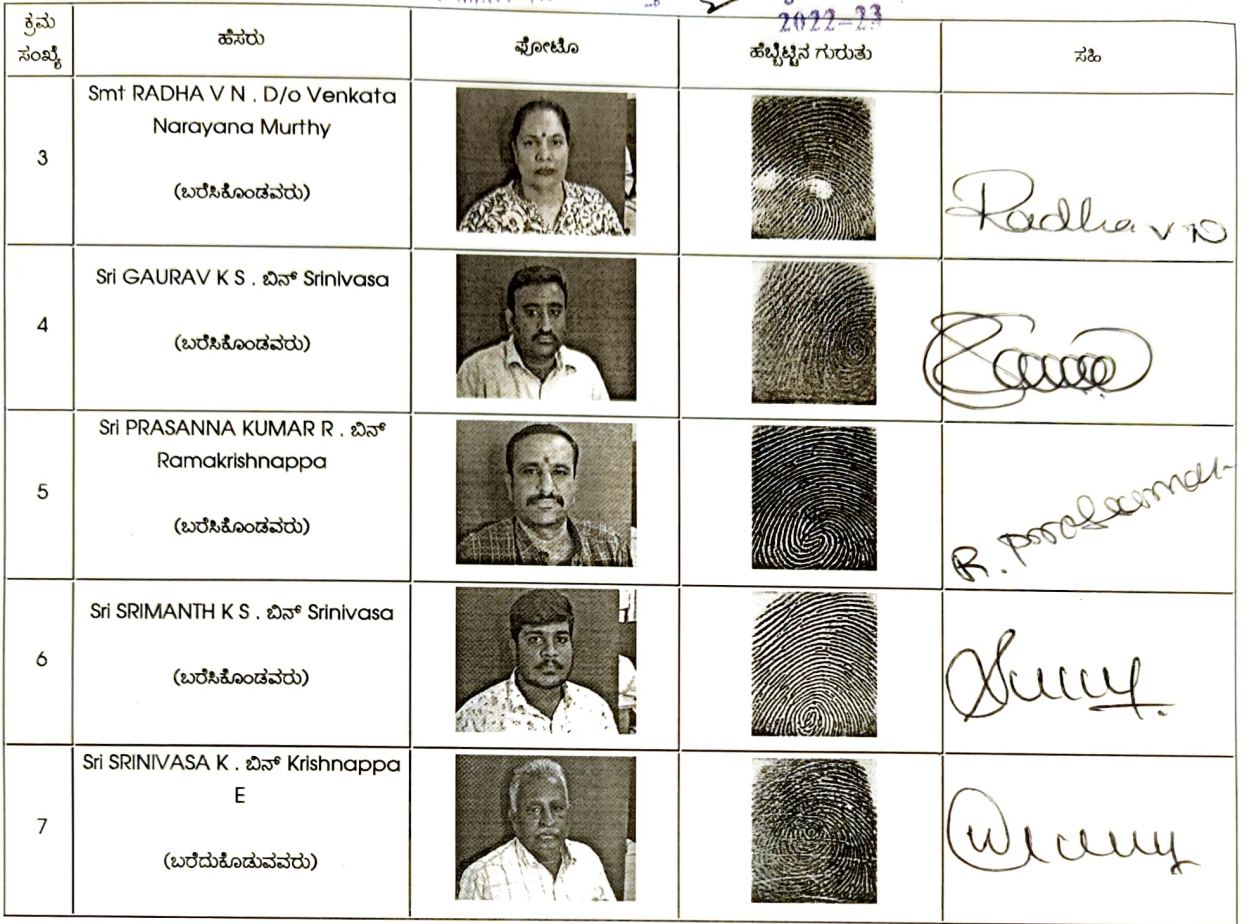 2022-23
ಕ್ರಮ ಸಂಖ್ಯೆ ಹೆಸರು ಫೋಟೊ ಹೆಬ್ಬೆಟ್ಟಿನ ಗುರುತು ಸಹಿ
Smt RADHA V N . D/o Venkata
Narayana Murthy
3
(ಬರೆಸಿಕೊಂಡವರು)
Radha V N
Sri GAURAV K S . ಬಿನ್ Srinivasa
4
(ಬರೆಸಿಕೊಂಡವರು)
Sri PRASANNA KUMAR R . ಬಿನ್
Ramakrishnappa
5
(ಬರೆಸಿಕೊಂಡವರು)
Sri SRIMANTH K S . ಬಿನ್ Srinivasa
6
(ಬರೆಸಿಕೊಂಡವರು)
Sri SRINIVASA K . ಬಿನ್ Krishnappa
E
7
(ಬರೆದುಕೊಡುವವರು)